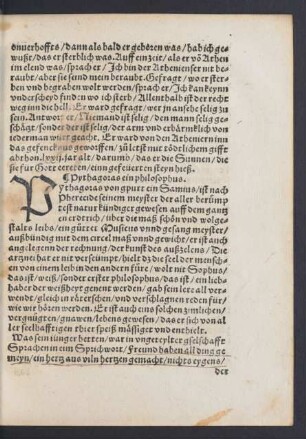 onuerhoffts/ dann als bald er geboren was/ hab ich ge⸗
wüßt/ das er sterblich was. Auff ein zeit/ als er vō Athen
im elend was/ sprach er/ Ich bin der Athenienser nit be⸗
raubt/ aber sie seind mein beraubt. Gefragt/ wo er ster⸗
ben vnd begraben wolt werden/ sprach er/ Ich kan keynn
vnderscheyd finden wo ich sterb/ Allenthalb ist der recht
weg inn die hell. Er ward gefragt/ wer jn ansehe selig zu
sein. Antwort er/ Niemand ist selig/ den mann selig ge⸗
schätzt/ sonder der ist selig/ der arm vnd erbärmklich von
iederman wirt geacht. Er ward von den Athenieren inn
das gefencknus geworffen/ zuletst mit tödtlichem gifft
āthon. lxxij. jar alt/ darumb/ das er die Sunnen/ die
sie für Gott ereten/ einn gefeürten steyn hieß.
¶ Pythagoras ein philosophus.
PYthagoras von gpurt ein Samius/ ist nach
Pherecide seinem meyster der aller berümp
test natürkündiger gewesen auff dem gantz
en erdtrich/ über die maß schön vnd wolge⸗
stalts leibs/ ein gůtter Musicus vnnd gesang meyster/
außbündig mit dem circel maß vnnd gewicht/ er ist auch
angelegen der rechnung/ der kunst des außzelens/ Die
artznei hat er nit verseümpt/ hielt dz die seel der mensch⸗
en von einem leib in den andern füre/ wolt nit Sophus/
das ist/ weiß/ sonder erster philosophus/ das ist/ ein lieb⸗
haber der weißheyt genent werden/ gab sein lere all ver⸗
wendt/ gleich in räterschen/ vnd verschlagnen reden für/
wie wir hören werden. Er ist auch eins solchen zimlichen/
vergnügten/ gnawen/ lebens gewesen/ das er sich von al
ler feelhafftigen thier speiß mässiget vnd enthielt.
Was sein jünger hetten/ war in vngeteylter gselschafft
Sprachen ein Sprichwort/ Freund haben all ding ge
meyn/ ein hertz aus viln hertzen gemacht/ nichts eygens/
der